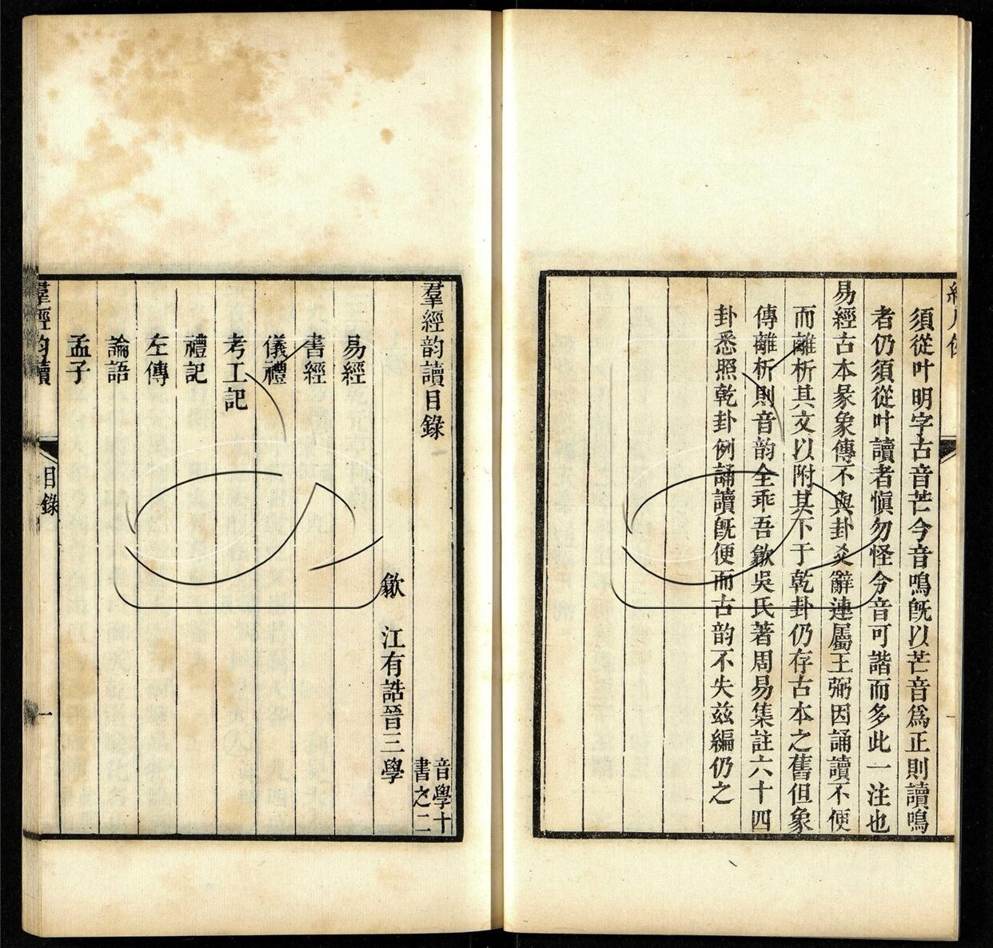 須從叶明字古音芒今音鳴旣以芒音爲正則讀鳴
者仍須從叶讀者愼勿怪今音可諧而多此一注也
易經古本彖象傳不與卦爻辭連屬王弼因誦讀不便
而離析其文以附其下于乾卦仍存古本之舊但象
傳離析則音韵全乖吾歙吳氏著周易集註六十四
卦悉照乾卦例誦讀旣便而古韵不失茲編仍之
羣經韵讀目錄
音學十
書之二
歙 江有誥晉三學
易經
書經
儀禮
考工記
禮記
左傳
論語
孟子
羣經韵讀
目錄
一